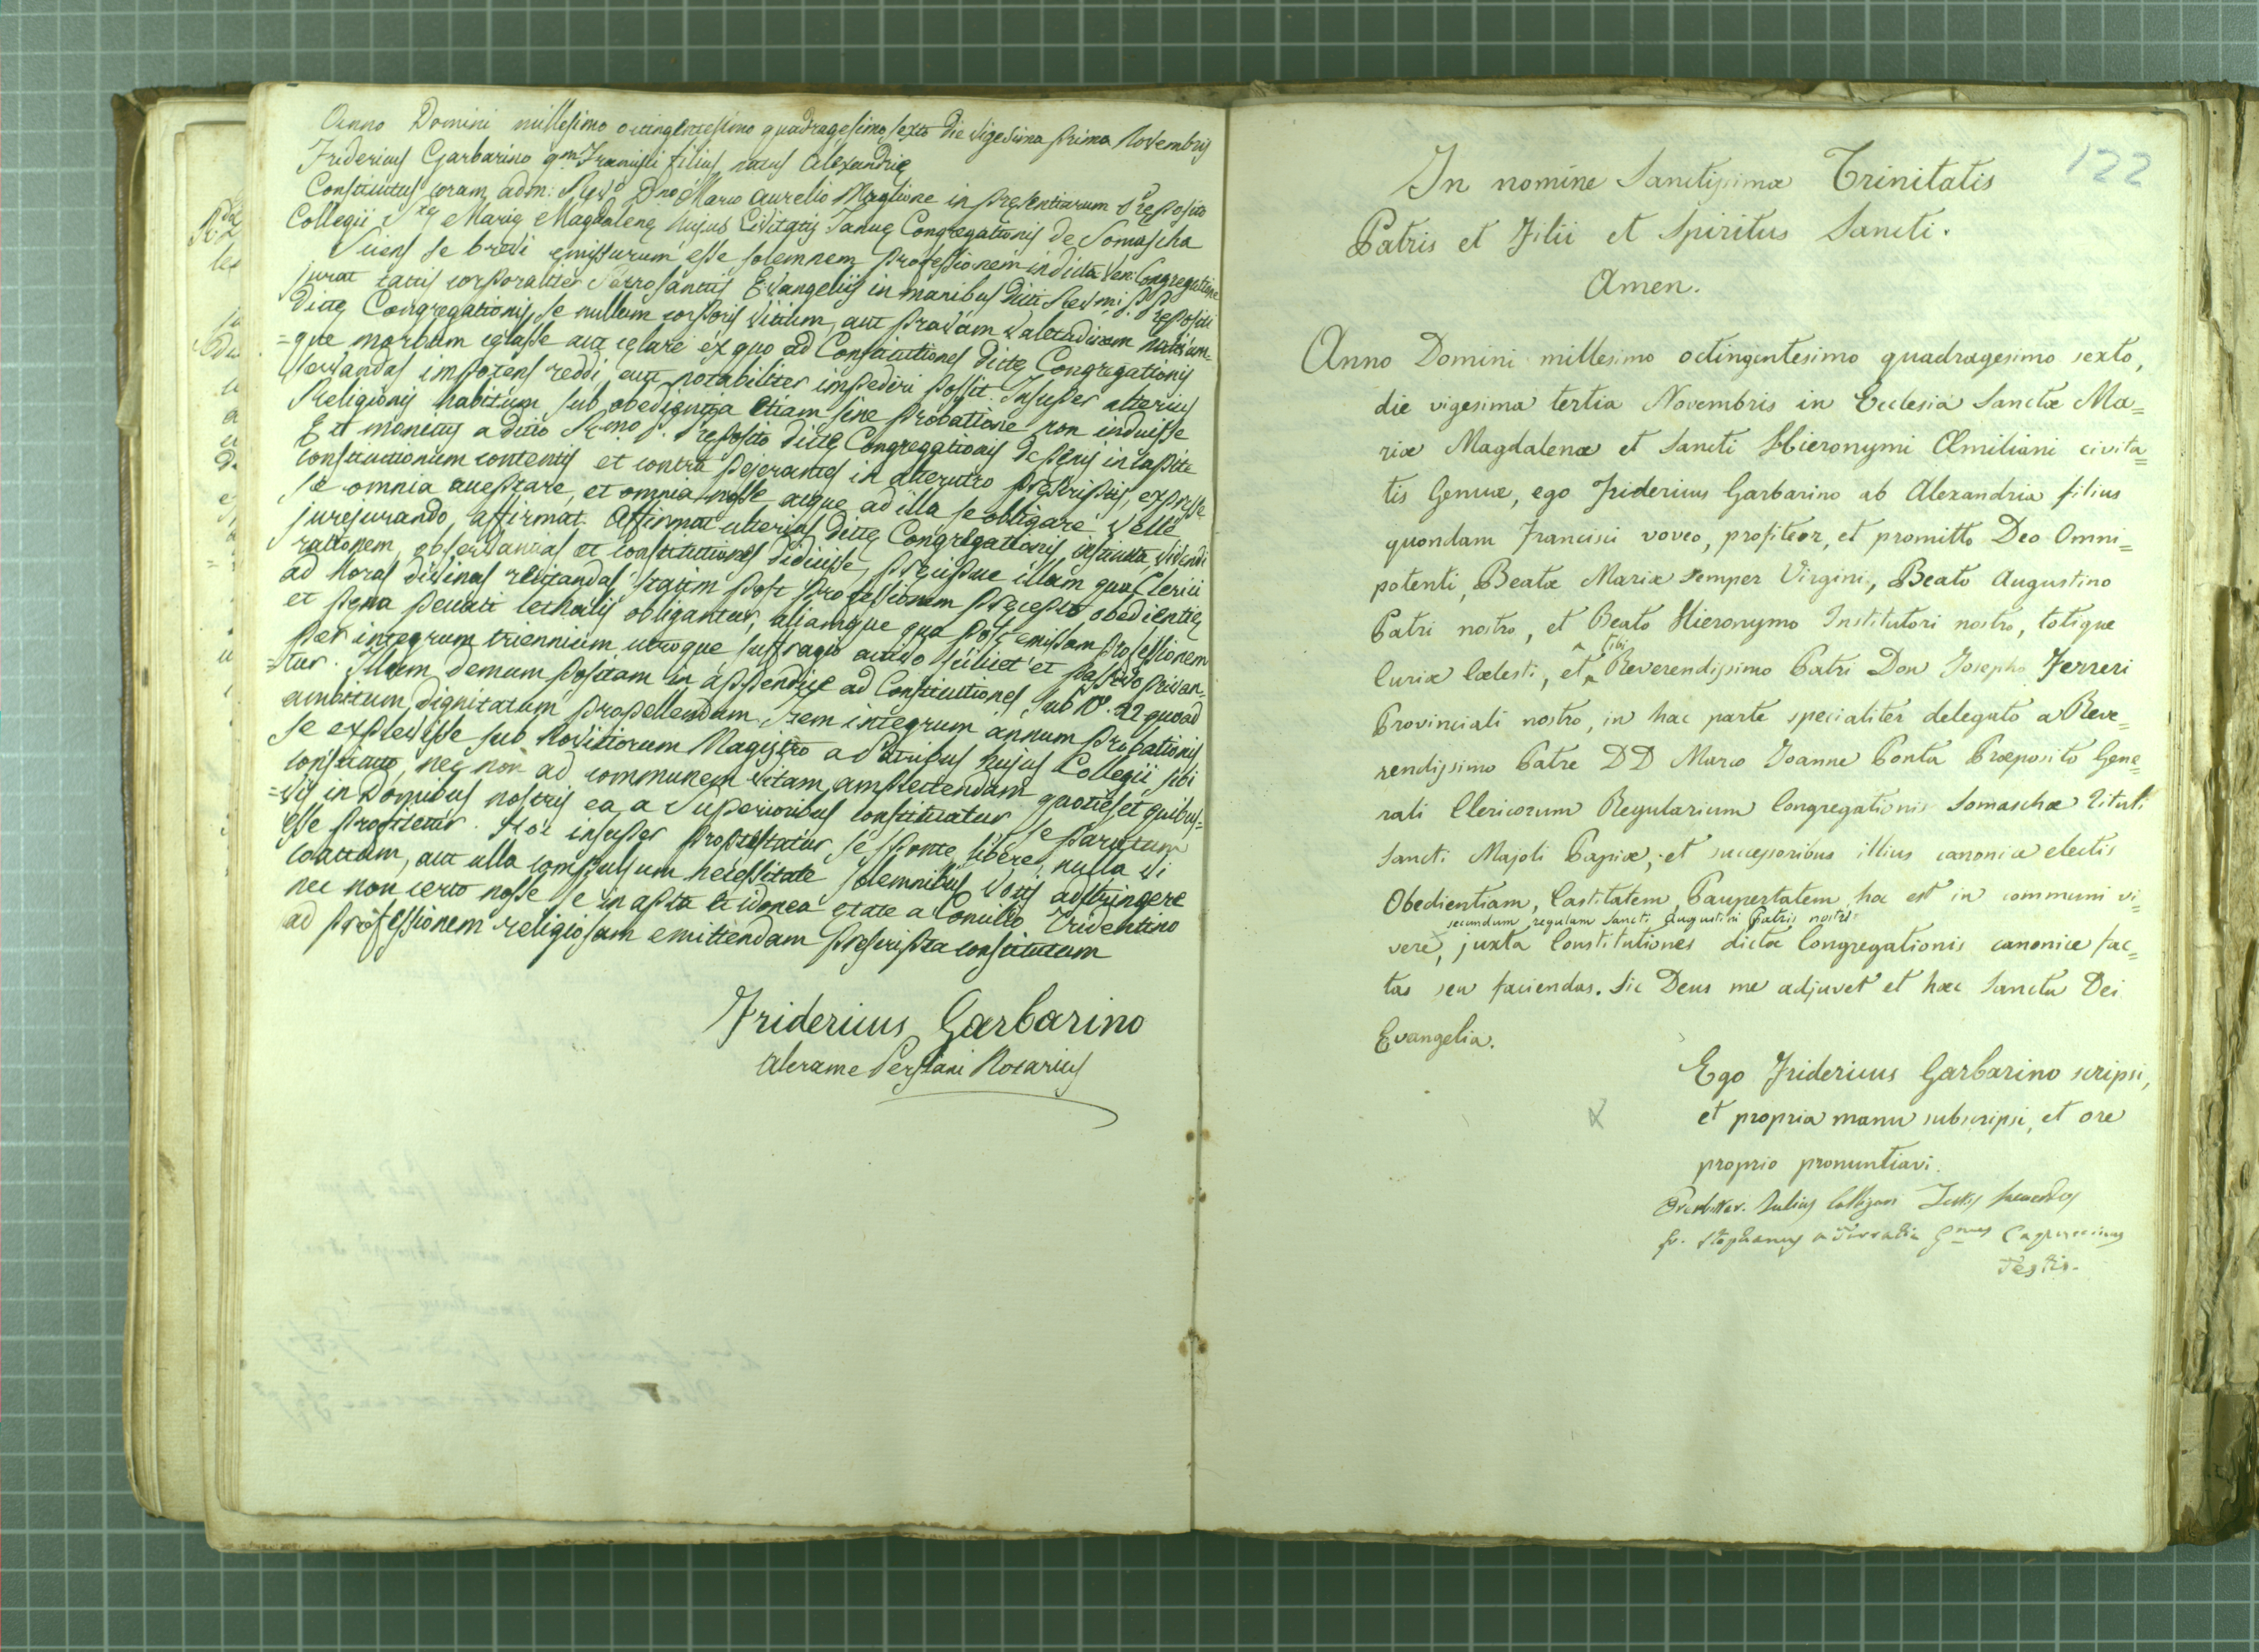 Anno Domini millesimo octingentesimo quadragesimo sexto die vigesima prima Novembris
Fridericus Garbarino qm Francisci filius, natus Alexandrię
Constitutus coram adm: Revdo Dno Marco Aurelio Maglione in pręsentiarum Pręposito
Collegii Stę Marię Magdalenę hujus Civitatis Januę Congregationis de Somascha
Sciens se brevi emissurum esse solemnem professionem in dicta Ven: Congregatione
jurat tactis corporaliter Sacrosanctis Evangeliis in manibus dicti Revmi P. Prępositi
dictę Congregationis, se nullum corporis vitium, aut pravam valetudinem
=que morbum cęlasse aut cęlare ex quo ad Constitutiones dictę Congregationis
servandas impotens reddi, aut notabiliter impediri possit. Insuper alterius
Religionis habitum sub obedientia etiam sine probatione non induisse
Et monitus a dicto Rmo P. Pręposito dictę Congregationis de pęnis in capite
constitutionum contentis et contra pejerantes in alterutro pręscriptis, expresse
se omnia acceptare, et omnia nosse atque ad illa se obligare velle
jurejurando, affirmat. Affirmat ulterius dictę Congregationis, instituta vivendi
rationem, observantias et constitutiones didicisse, pręcipue illam qua Clerici
ad horas divinas recitandas statim post professionem pręcepto obedientię
et pęna peccati lethalis obligantur, aliamque qua post emissam professionem
per integrum triennium utroque suffragio activo scilicet et passivo privan-
=tur. Illam demum positam in appendice ad Constitutiones sub No. 22 quoad
ambitum dignitatum propellendum. Item integrum annum probationis
se explevisse sub Novitiorum Magistro a Patribus hujus Collegii sibi
constituto, nec non ad communem vitam amplectendam quoties et quibus=
=vis in Domibus nostris ea a Superioribus constituatur se paratum
esse profitetur. Hoc insuper protestatur se sponte, libere, nulla vi
coactum, aut ulla compulsum necessitate solemnibus votis adstringere
nec non certo nosse se in apta et idonea ętate a Concilio Tridentino
ad professionem religiosam emittendam pręscripta constitutum
Fridericus Garbarino
Alerame Persiani Notarius
122
In nomine Sanctissimæ Trinitatis
Patris et Filii et Spiritus Sancti.
Amen.
Anno Domini millesimo octingentesimo quadragesimo sexto,
die vigesima tertia Novembris in Ecclesia Sanctæ Ma=
riæ Magdalenæ et Sancti Hieronymi Æmiliani civita=
tis Genuæ, ego Fridericus Garbarino ab Alexandria filius
quondam Francisci voveo, profiteor, et promitto Deo Omni=
potenti, Beatæ Mariæ semper Virgini, Beato Augustino
Patri nostro, et Beato Hieronymo Institutori nostro, totique
Curiæ Cælesti, et tibi Reverendissimo Patri Don Josepho Ferreri
Provinciali nostro, in hac parte specialiter delegato a Reve=
rendissimo Patre DD Marco Joanne Ponta Præposito Gene=
rali Clericorum Regularium Congregationis Somaschæ Tituli
Sancti Majoli Papiæ, et successoribus illius canonice electis
Obedientiam, Castitatem, Paupertatem, hoc est in communi vi=
secundum regulam Sancti Augustini Patris nostri
vere, juxta Constitutiones dictæ Congregationis canonice fac=
tas seu faciendas. Sic Deus me adjuvet et hæc Sancta Dei
Evangelia.
Ego Fridericus Garbarino scripsi,
et propria manu subscripsi, et ore
proprio pronuntiavi.
Presbiter. Julius Testis
fr. Stephanus a Capuccinus
Testis.